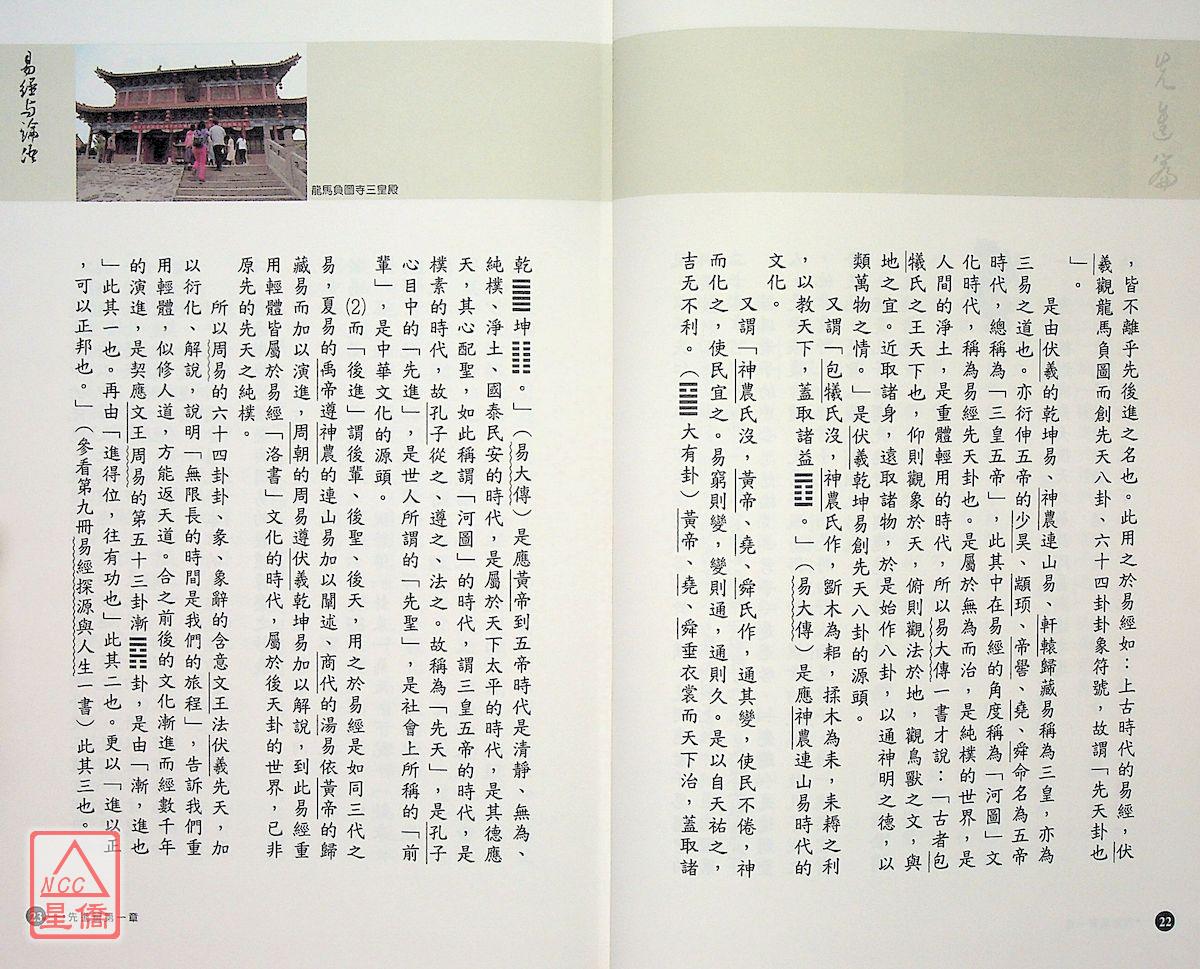 先進篇
，皆不離乎先後進之名也。此用之於易經如：上古時代的易經，伏
羲觀龍馬負圖而創先天八卦、六十四卦卦象符號，故謂「先天卦也
」。
是由伏羲的乾坤易、神農連山易、軒轅歸藏易稱為三皇，亦為
三易之道也。亦衍伸五帝的少昊、顓頊、帝嚳、堯、舜命名為五帝
時代，總稱為「三皇五帝」，此其中在易經的角度稱為「河圖」文
化時代，稱為易經先天卦也。是屬於無為而治，是純樸的世界，是
人間的淨土，是重體輕用的時代，所以易大傳一書才說：「古者包
犧氏之王天下也，仰則觀象於天，俯則觀法於地，觀鳥獸之文，與
地之宜。近取諸身，遠取諸物，於是始作八卦，以通神明之德，以
類萬物之情。」是伏羲乾坤易創先天八卦的源頭。
又謂「包犧氏沒，神農氏作，斲木為耜，揉木為耒，耒耨之利
，以教天下，蓋取諸益䷩。」（易大傳）是應神農連山易時代的
文化。
又謂「神農氏沒，黃帝、堯、舜氏作，通其變，使民不倦，神
而化之，使民宜之。易窮則變，變則通，通則久。是以自天祐之，
吉无不利。（䷍大有卦）黃帝、堯、舜垂衣裳而天下治，蓋取諸
22
易經與論語
龍馬負圖寺三皇殿
乾䷀坤䷁。」（易大傳）是應黃帝到五帝時代是清靜、無為、
純樸、淨土、國泰民安的時代，是屬於天下太平的時代，是其德應
天，其心配聖，如此稱謂「河圖」的時代，謂三皇五帝的時代，是
樸素的時代，故孔子從之、遵之、法之。故稱為「先天」，是孔子
心目中的「先進」，是世人所謂的「先聖」，是社會上所稱的「前
輩」，是中華文化的源頭。
⑵而「後進」謂後輩、後聖、後天，用之於易經是如同三代之
易，夏易的禹帝遵神農的連山易加以闡述、商代的湯易依黃帝的歸
藏易而加以演進，周朝的周易遵伏羲乾坤易加以解說，到此易經重
用輕體皆屬於易經「洛書」文化的時代，屬於後天卦的世界，已非
原先的先天之純樸。
所以周易的六十四卦卦、彖、象辭的含意文王法伏羲先天，加
以衍化、解說，說明「無限長的時間是我們的旅程」，告訴我們重
用輕體，似修人道，方能返天道。合之前後的文化漸進而經數千年
的演進，是契應文王周易的第五十三卦漸䷴卦，是由「漸，進也
」此其一也。再由「進得位，往有功也」此其二也。更以「進以正
，可以正邦也。」（參看第九冊易經探源與人生一書）此其三也。
23
NCC
星僑